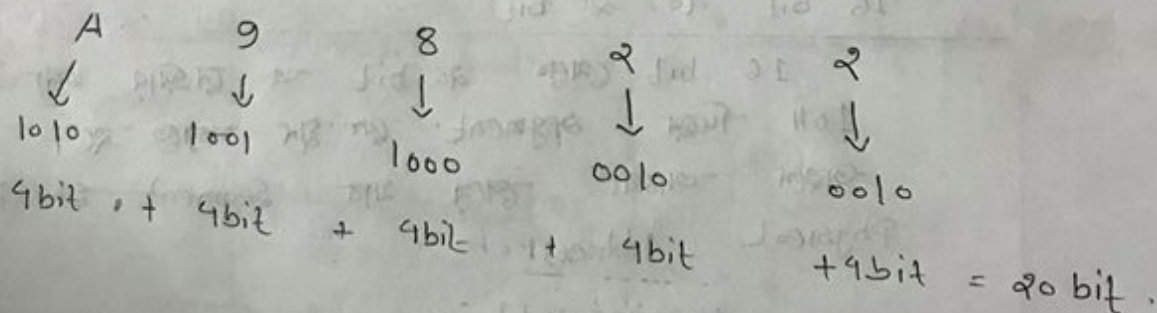 A 9 8 2 2
↙ ↓ ↓ ↓ ↘
1010 1001 1000 0010 0010
4bit + 4bit + 4bit + 4bit + 4bit = 20 bit.